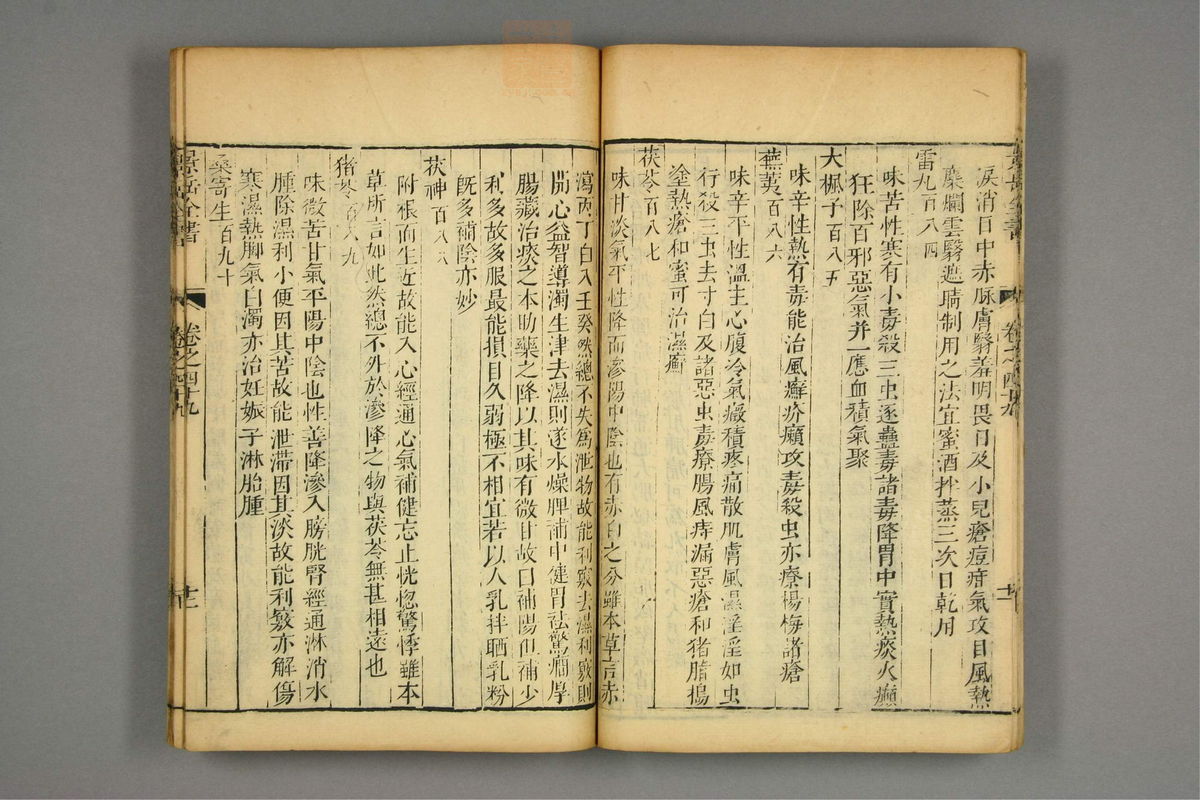 淚消目中赤脉膚翳羞明畏日及小兒瘡痘疳氣攻目風熱
麋爛雲翳遮睛制用之法宜蜜酒拌蒸三次日乾用
雷丸百八四
味苦性寒有小毒殺三虫逐蠱毒諸毒降胃中實熱痰火癲
狂除百邪惡氣并一應血積氣聚
大楓子百八五
味辛性熱有毒能治風癬疥癩攻毒殺虫亦療楊梅諸瘡
蕪荑百八六
味辛平性溫主心腹冷氣癥積疼痛散肌膚風濕淫淫如虫
行殺三虫去寸白及諸惡虫毒療腸風痔漏惡瘡和猪脂搗
塗熱瘡和蜜可治濕癬
茯苓百八七
味甘淡氣平性降而滲陽中陰也有赤白之分雖本草言赤
瀉丙丁白入壬癸然總不失爲泄物故能利竅去濕利竅則
開心益智導濁生津去濕則逐水燥脾補中健胃祛驚癇厚
腸藏治痰之本助藥之降以其味有微甘故曰補陽但補少
利多故多服最能損目久弱極不相宜若以人乳拌晒乳粉
既多補陰亦妙
茯神百八八
附根而生近故能入心經通心氣補健忘止恍惚驚悸雖本
草所言如此然總不外於滲降之物與茯苓無甚相遠也
猪苓百八九
味微苦甘氣平陽中陰也性善降滲入膀胱腎經通淋消水
腫除濕利小便因其苦故能泄滯因其淡故能利竅亦解傷
寒濕熱脚氣白濁亦治妊娠子淋胎腫
桑寄生百九十
景岳全書
卷之四十九